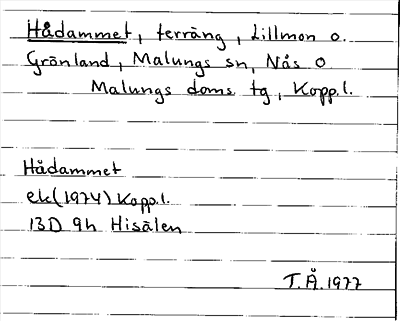 Hådammet, terräng, Lillmon o.
Grönland, Malungs sn, Nås o
Malungs doms. tg, Kopp. l.
Hådammet
ek (1974) Kopp. l.
13D 9h Hisälen
T. Å. 1977